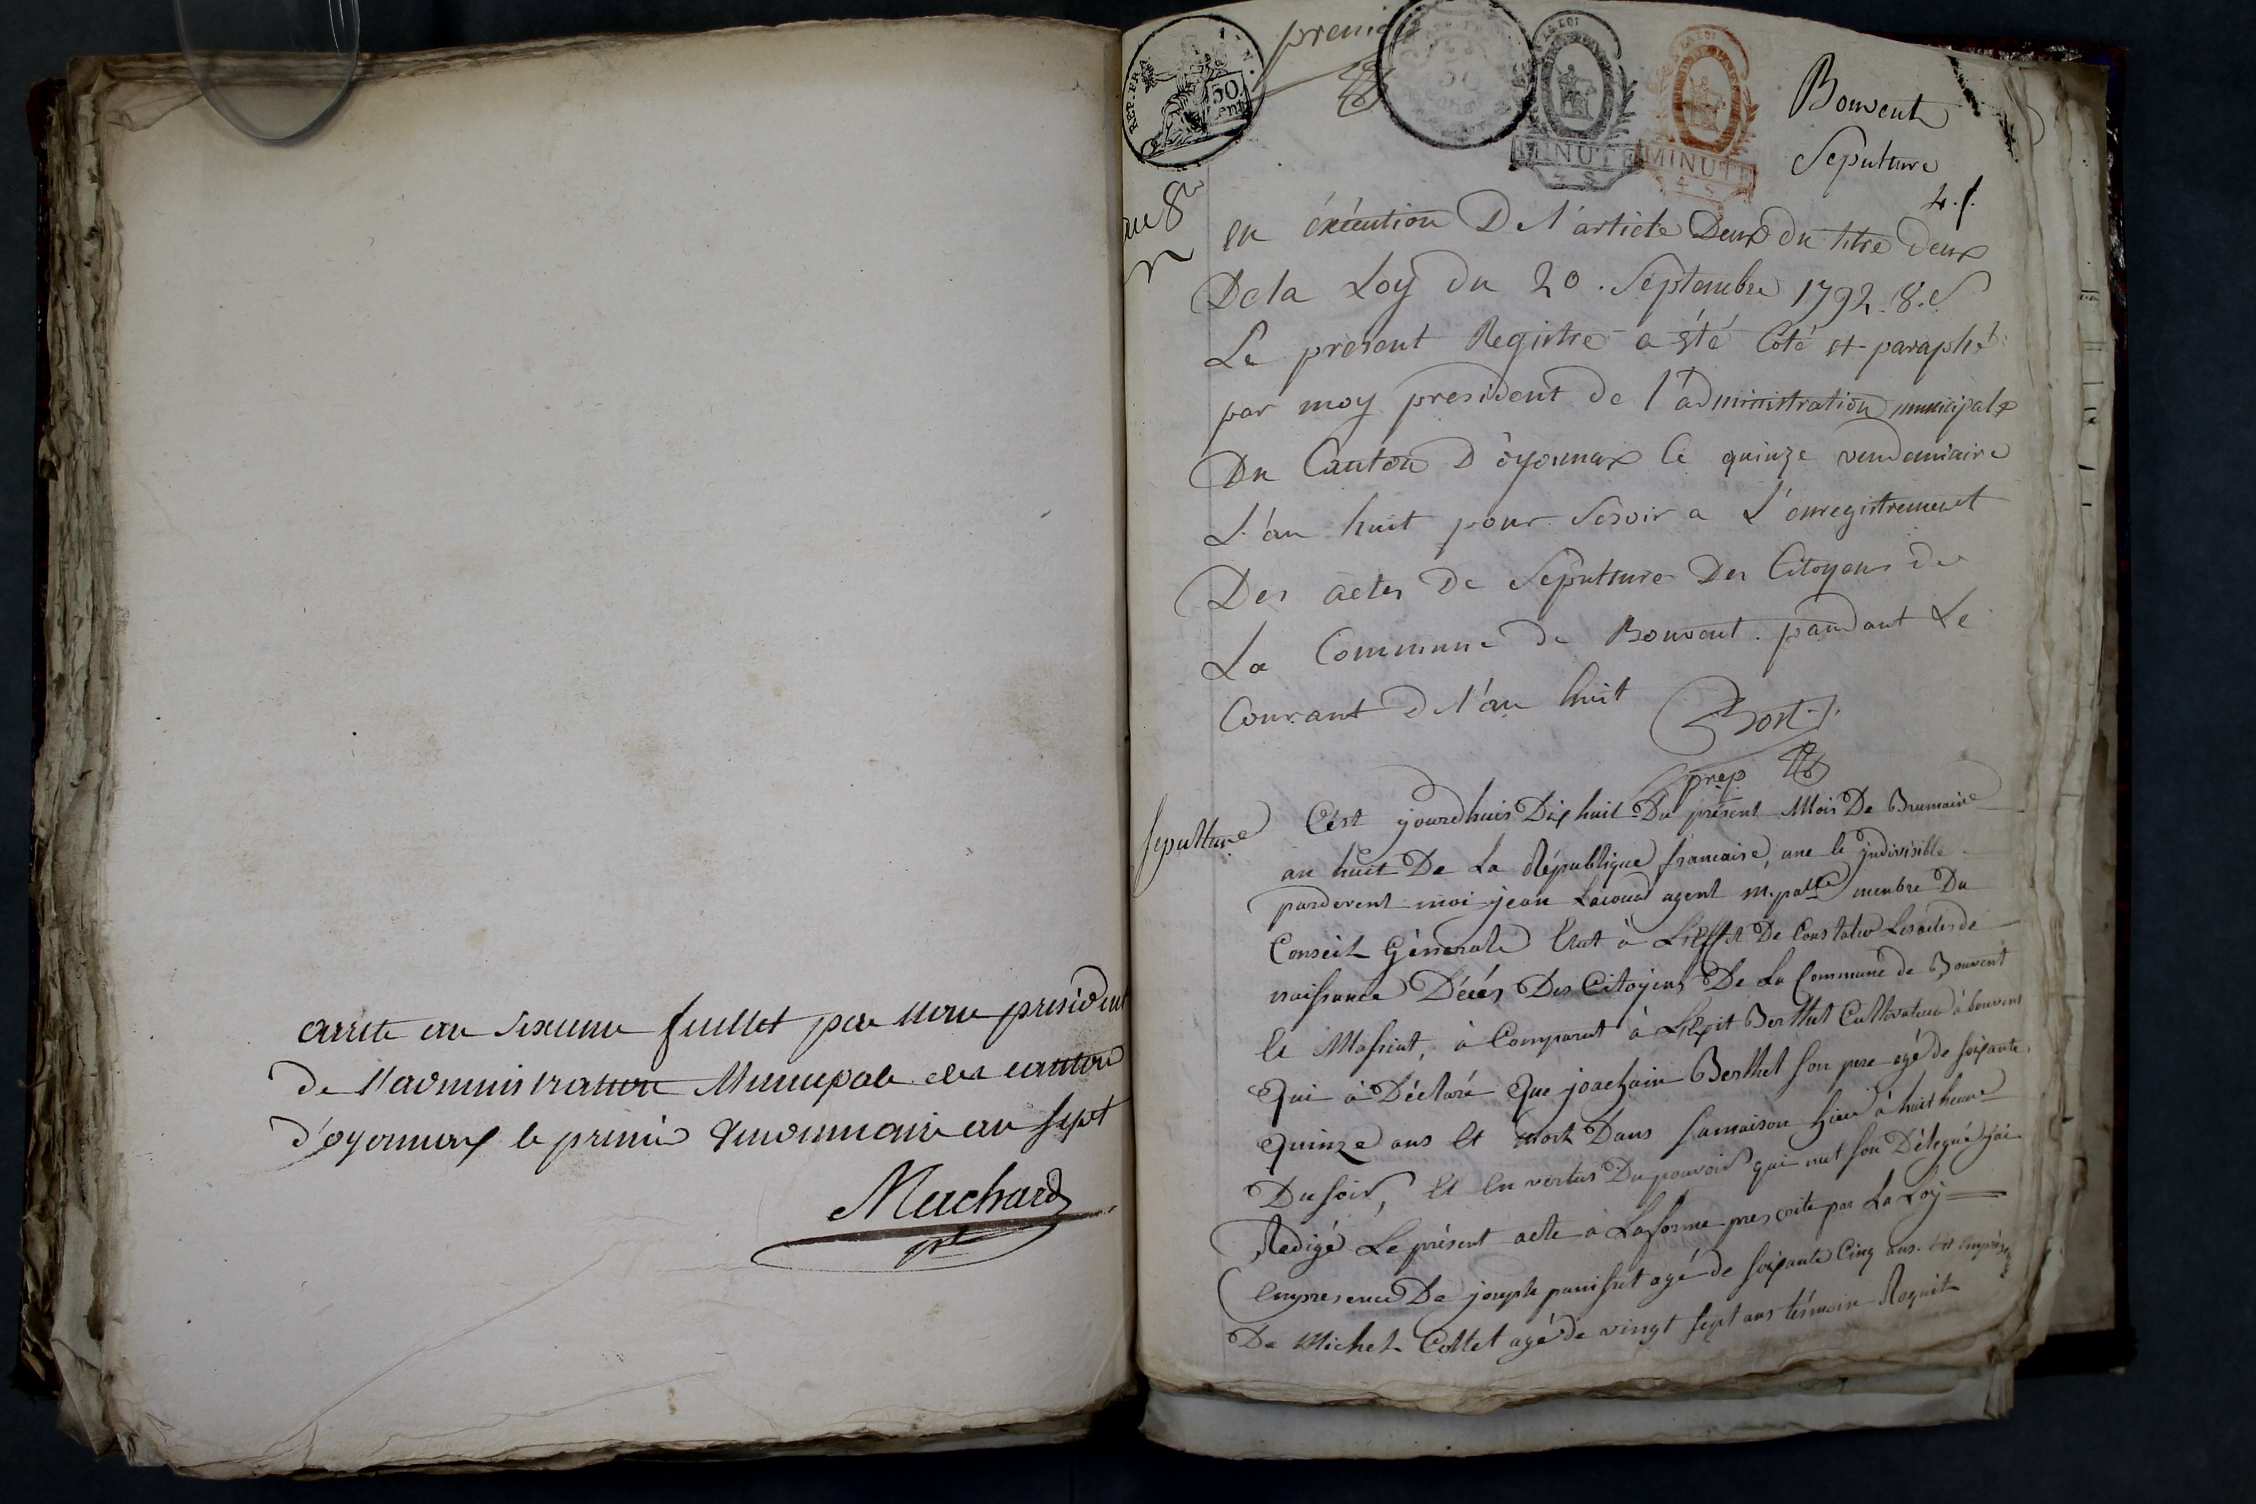 arrete au sixieme feuillet par nous president
de l'administration Municipale du canton
d'oyonnax le premier vendemiaire an sept
Machard
pt
REP. FRA.
50
cent
premier
MINUTE
MINUTE
Bouvent
Sepulture
4. f.
au 8
en éxécution De l'article Deux du titre deux
De la Loy du 20. Septembre 1792. 8. S
Le present Registre a été Coté et paraphé
par moy president de l'administration municipale
Du Canton D'oyonnax le quinze vendemiaire
L'an huit pour Servir a L'enregistrement
Des actes de Sepulture Des Citoyens de
La Commune de Bouvent. pandant Le
Courant De l'an huit
Bort
Sepulture
Cest jourdhuis Dix huit Du présent Mois De Brumaire
an huit De La République francaise, une le jndivisible
pardevent moi jean Lacoua agent m.palle menbre Du
Conseil Génerale Elut à L'Effet De Constater Les actes de
naissance Décés Des Citoyens De La Commune de Bouvent
Et Massiat, à Comparut à Berthet Cultivateur à bouvent
Qui à Déclaré Que joachain Berthet son pere agé de soixante
Quinze ans Et mort Dans samaison hier à huit heure
Du soir, Et En vertus Du pouvoir qui mut son Délegué jai
Redigé Le présent acte à Laforme prescrite par La Loy
Enpresence De joseph panisset agé de soixante Cinq ans
De Michel Collet agé de vingt sept ans témoin Requit